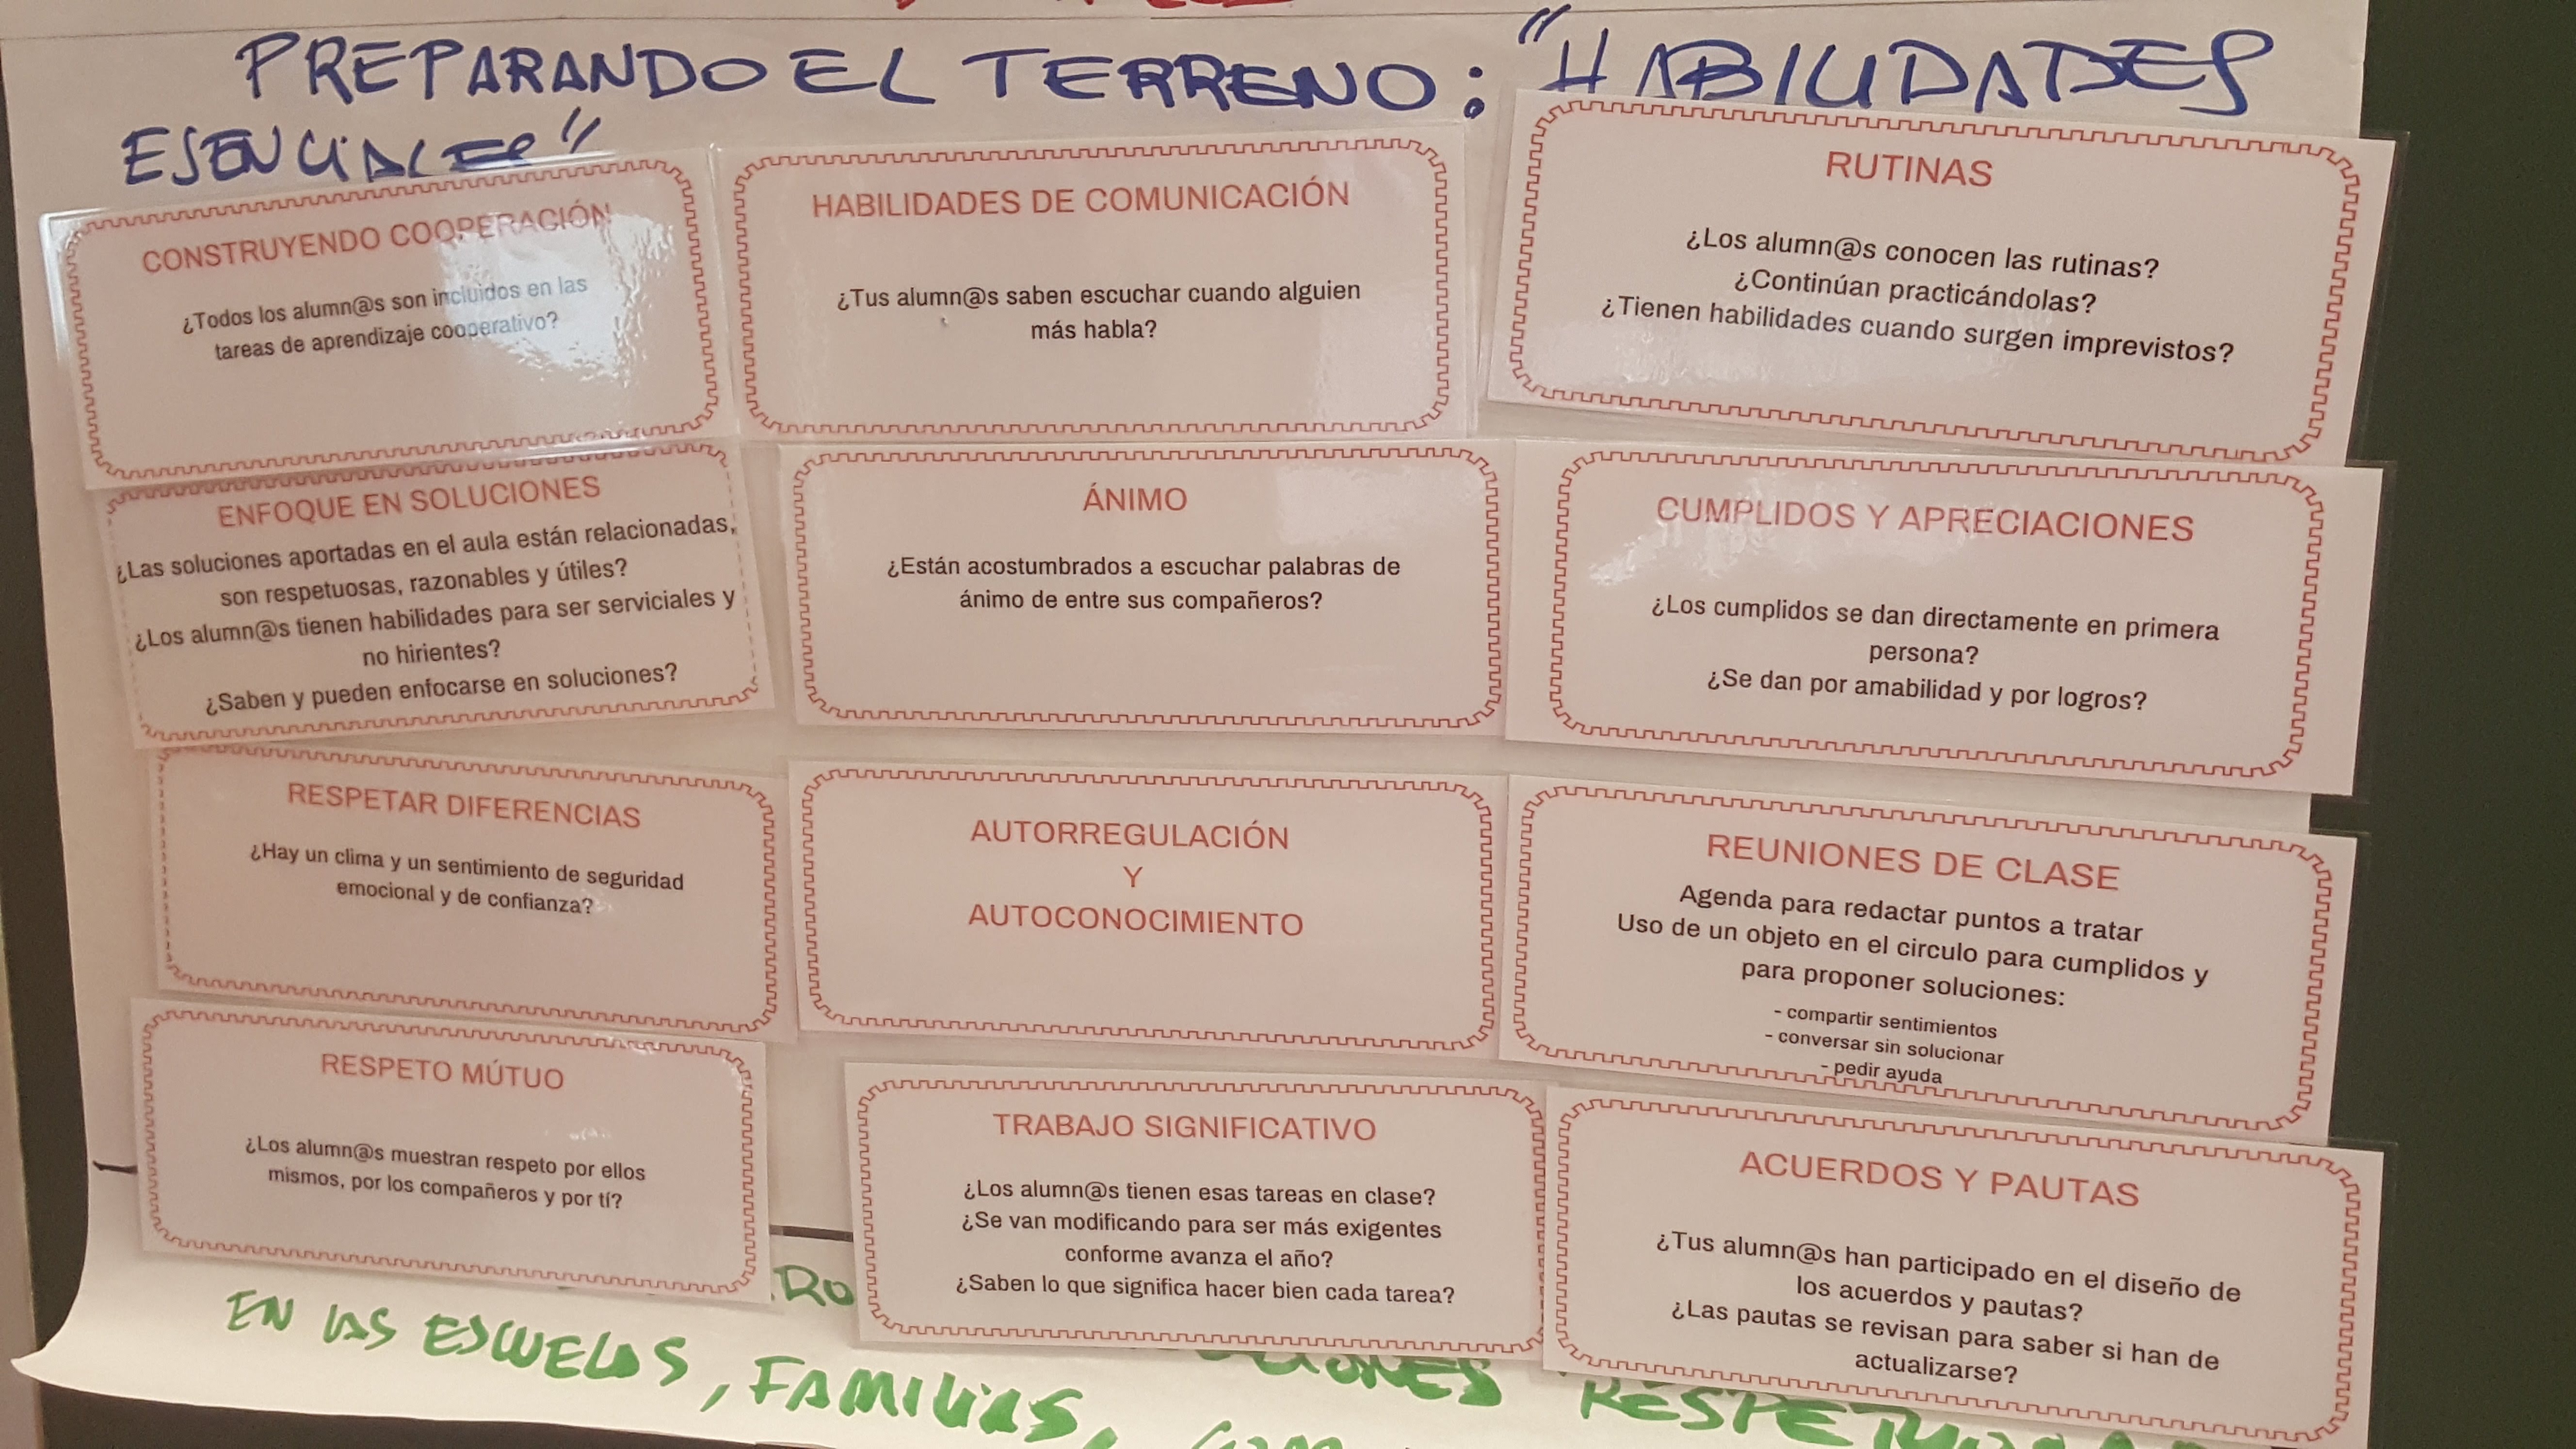 PREPARANDO EL TERRENO: "HABILIDADES
ESENCIALES"
CONSTRUYENDO COOPERACIÓN
¿Todos los alumn@s son incluidos en las
tareas de aprendizaje cooperativo?
HABILIDADES DE COMUNICACIÓN
¿Tus alumn@s saben escuchar cuando alguien
más habla?
RUTINAS
¿Los alumn@s conocen las rutinas?
¿Continúan practicándolas?
¿Tienen habilidades cuando surgen imprevistos?
ENFOQUE EN SOLUCIONES
¿Las soluciones aportadas en el aula están relacionadas,
son respetuosas, razonables y útiles?
¿Los alumn@s tienen habilidades para ser serviciales y
no hirientes?
¿Saben y pueden enfocarse en soluciones?
ÁNIMO
¿Están acostumbrados a escuchar palabras de
ánimo de entre sus compañeros?
CUMPLIDOS Y APRECIACIONES
¿Los cumplidos se dan directamente en primera
persona?
¿Se dan por amabilidad y por logros?
RESPETAR DIFERENCIAS
¿Hay un clima y un sentimiento de seguridad
emocional y de confianza?
AUTORREGULACIÓN
Y
AUTOCONOCIMIENTO
REUNIONES DE CLASE
Agenda para redactar puntos a tratar
Uso de un objeto en el circulo para cumplidos y
para proponer soluciones:
- compartir sentimientos
- conversar sin solucionar
- pedir ayuda
RESPETO MÚTUO
¿Los alumn@s muestran respeto por ellos
mismos, por los compañeros y por tí?
TRABAJO SIGNIFICATIVO
¿Los alumn@s tienen esas tareas en clase?
¿Se van modificando para ser más exigentes
conforme avanza el año?
¿Saben lo que significa hacer bien cada tarea?
ACUERDOS Y PAUTAS
¿Tus alumn@s han participado en el diseño de
los acuerdos y pautas?
¿Las pautas se revisan para saber si han de
actualizarse?
EN LAS ESCUELAS, FAMILIAS,